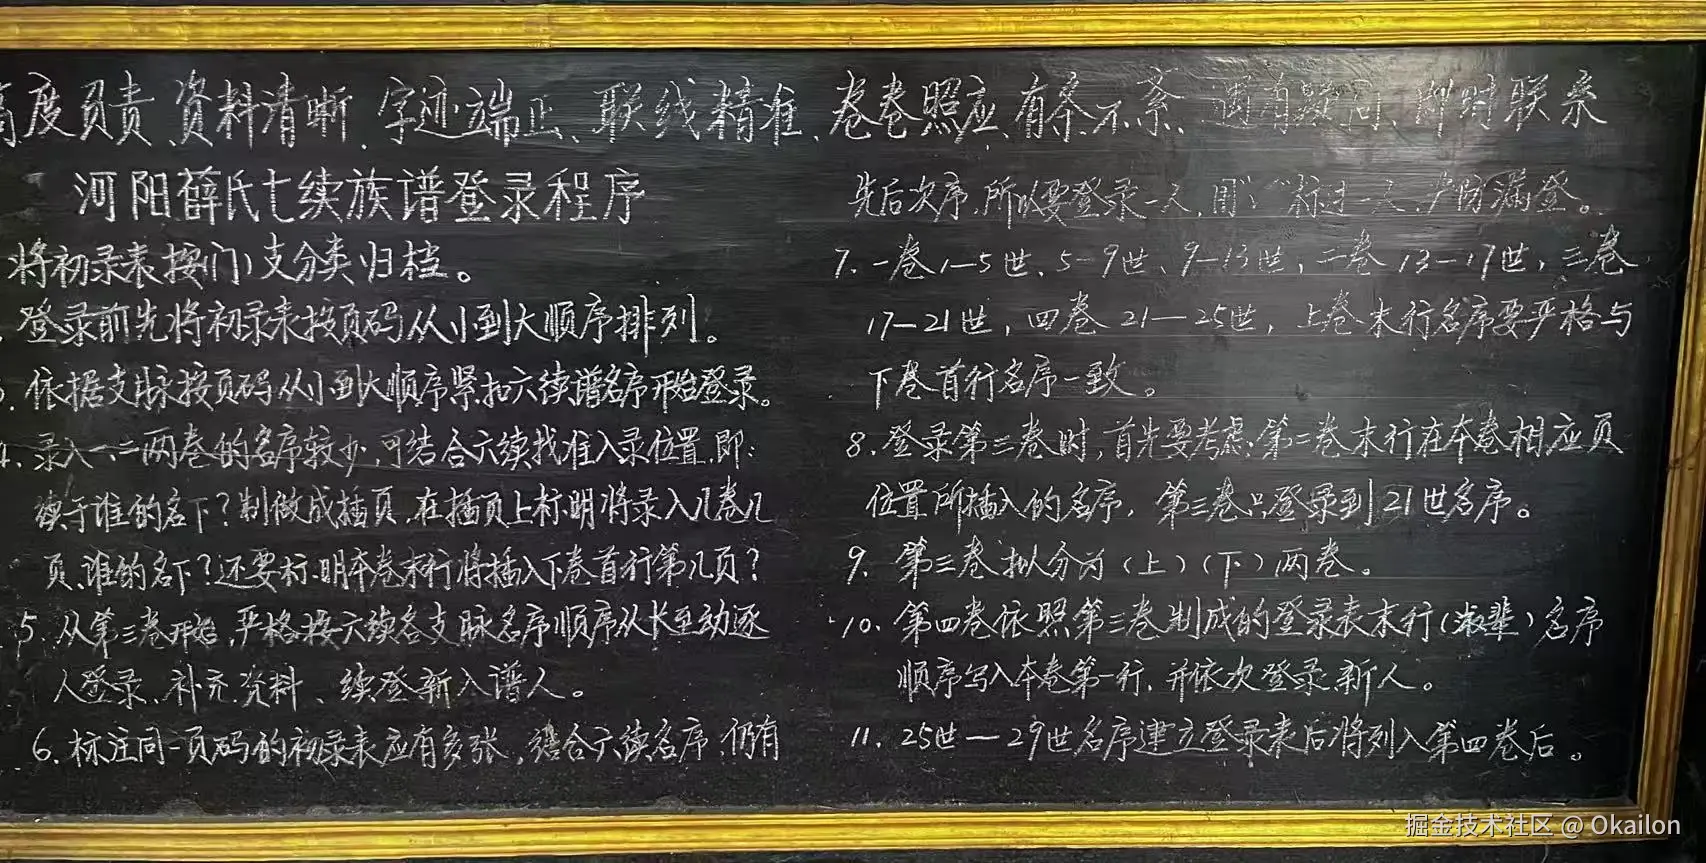 高度负责、资料清晰、字迹端正、联线精准、卷卷照应、有条不紊、遇有疑问、即时联系
河阳薛氏七续族谱登录程序
将初录表按(门)支分类归档。
登录前先将初录表按页码从小到大顺序排列。
3. 依据支脉按页码从小到大顺序紧扣六续谱名序开始登录。
4. 录入一二两卷的名序较少,可结合六续找准入录位置,即:
续于谁的名下?制做成插页,在插页上标明将录入几卷几
页、谁的名下?还要标明本卷末行将插入下卷首行第几页?
5. 从第三卷开始,严格按六续各支脉名序顺序从长至幼逐
人登录、补充资料、续登新入谱人。
6. 标注同一页码的初录表应有多张,结合六续名序,仍有
先后次序,所以要登录一人,用“、”标过一人,严防漏登。
7. 一卷1—5世、5—9世、9—13世,二卷13—17世,三卷
17—21世,四卷21—25世,上卷末行名序要严格与
下卷首行名序一致。
8. 登录第三卷时,首先要考虑:第二卷末行在本卷相应页
位置所插入的名序,第三卷只登录到21世名序。
9. 第三卷拟分为(上)(下)两卷。
10. 第四卷依照第三卷制成的登录表末行(淑辈)名序
顺序写入本卷第一行,并依次登录新人。
11. 25世—29世名序建立登录表后将列入第四卷后。
掘金技术社区 @ Okailon